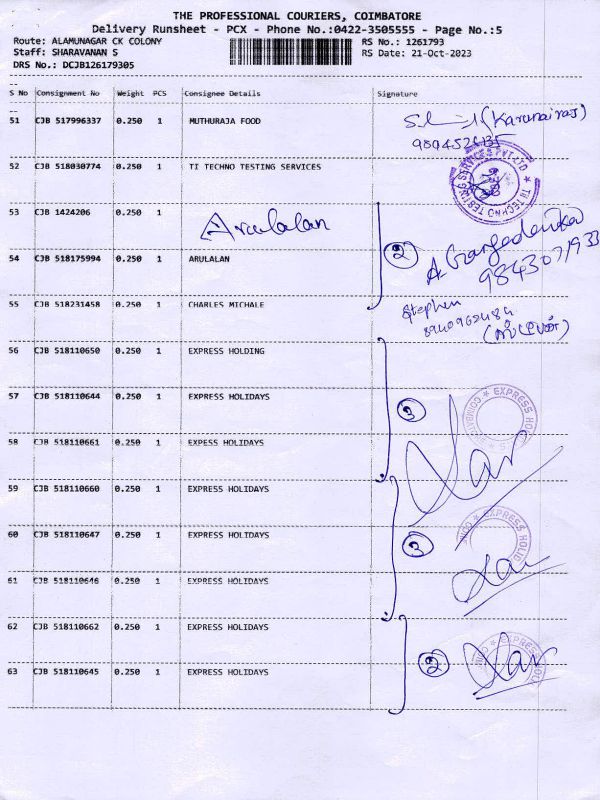 THE PROFESSIONAL COURIERS, COIMBATORE
Delivery Runsheet - PCX - Phone No.:0422-3505555 - Page No.:5
Route: ALAMUNAGAR CK COLONY RS No.: 1261793
Staff: SHARAVANAN S RS Date: 21-Oct-2023
DRS No.: DCJB126179305
S No Consignment No Weight PCS Consignee Details Signature
51 CJB 517996337 0.250 1 MUTHURAJA FOOD (Karunairaj)
52 CJB 518030774 0.250 1 TI TECHNO TESTING SERVICES
TI TECHNO TESTING SERVICES PVT LTD
53 CJB 1424206 0.250 1 Arulalan
2
54 CJB 518175994 0.250 1 ARULALAN
9843071933
Stephen
55 CJB 518231458 0.250 1 CHARLES MICHALE
56 CJB 518110650 0.250 1 EXPRESS HOLDING
57 CJB 518110644 0.250 1 EXPRESS HOLIDAYS 3
58 CJB 518110661 0.250 1 EXPESS HOLIDAYS
59 CJB 518110660 0.250 1 EXPRESS HOLIDAYS
60 CJB 518110647 0.250 1 EXPRESS HOLIDAYS 3
61 CJB 518110646 0.250 1 EXPRESS HOLIDAYS
62 CJB 518110662 0.250 1 EXPRESS HOLIDAYS
63 CJB 518110645 0.250 1 EXPRESS HOLIDAYS 2